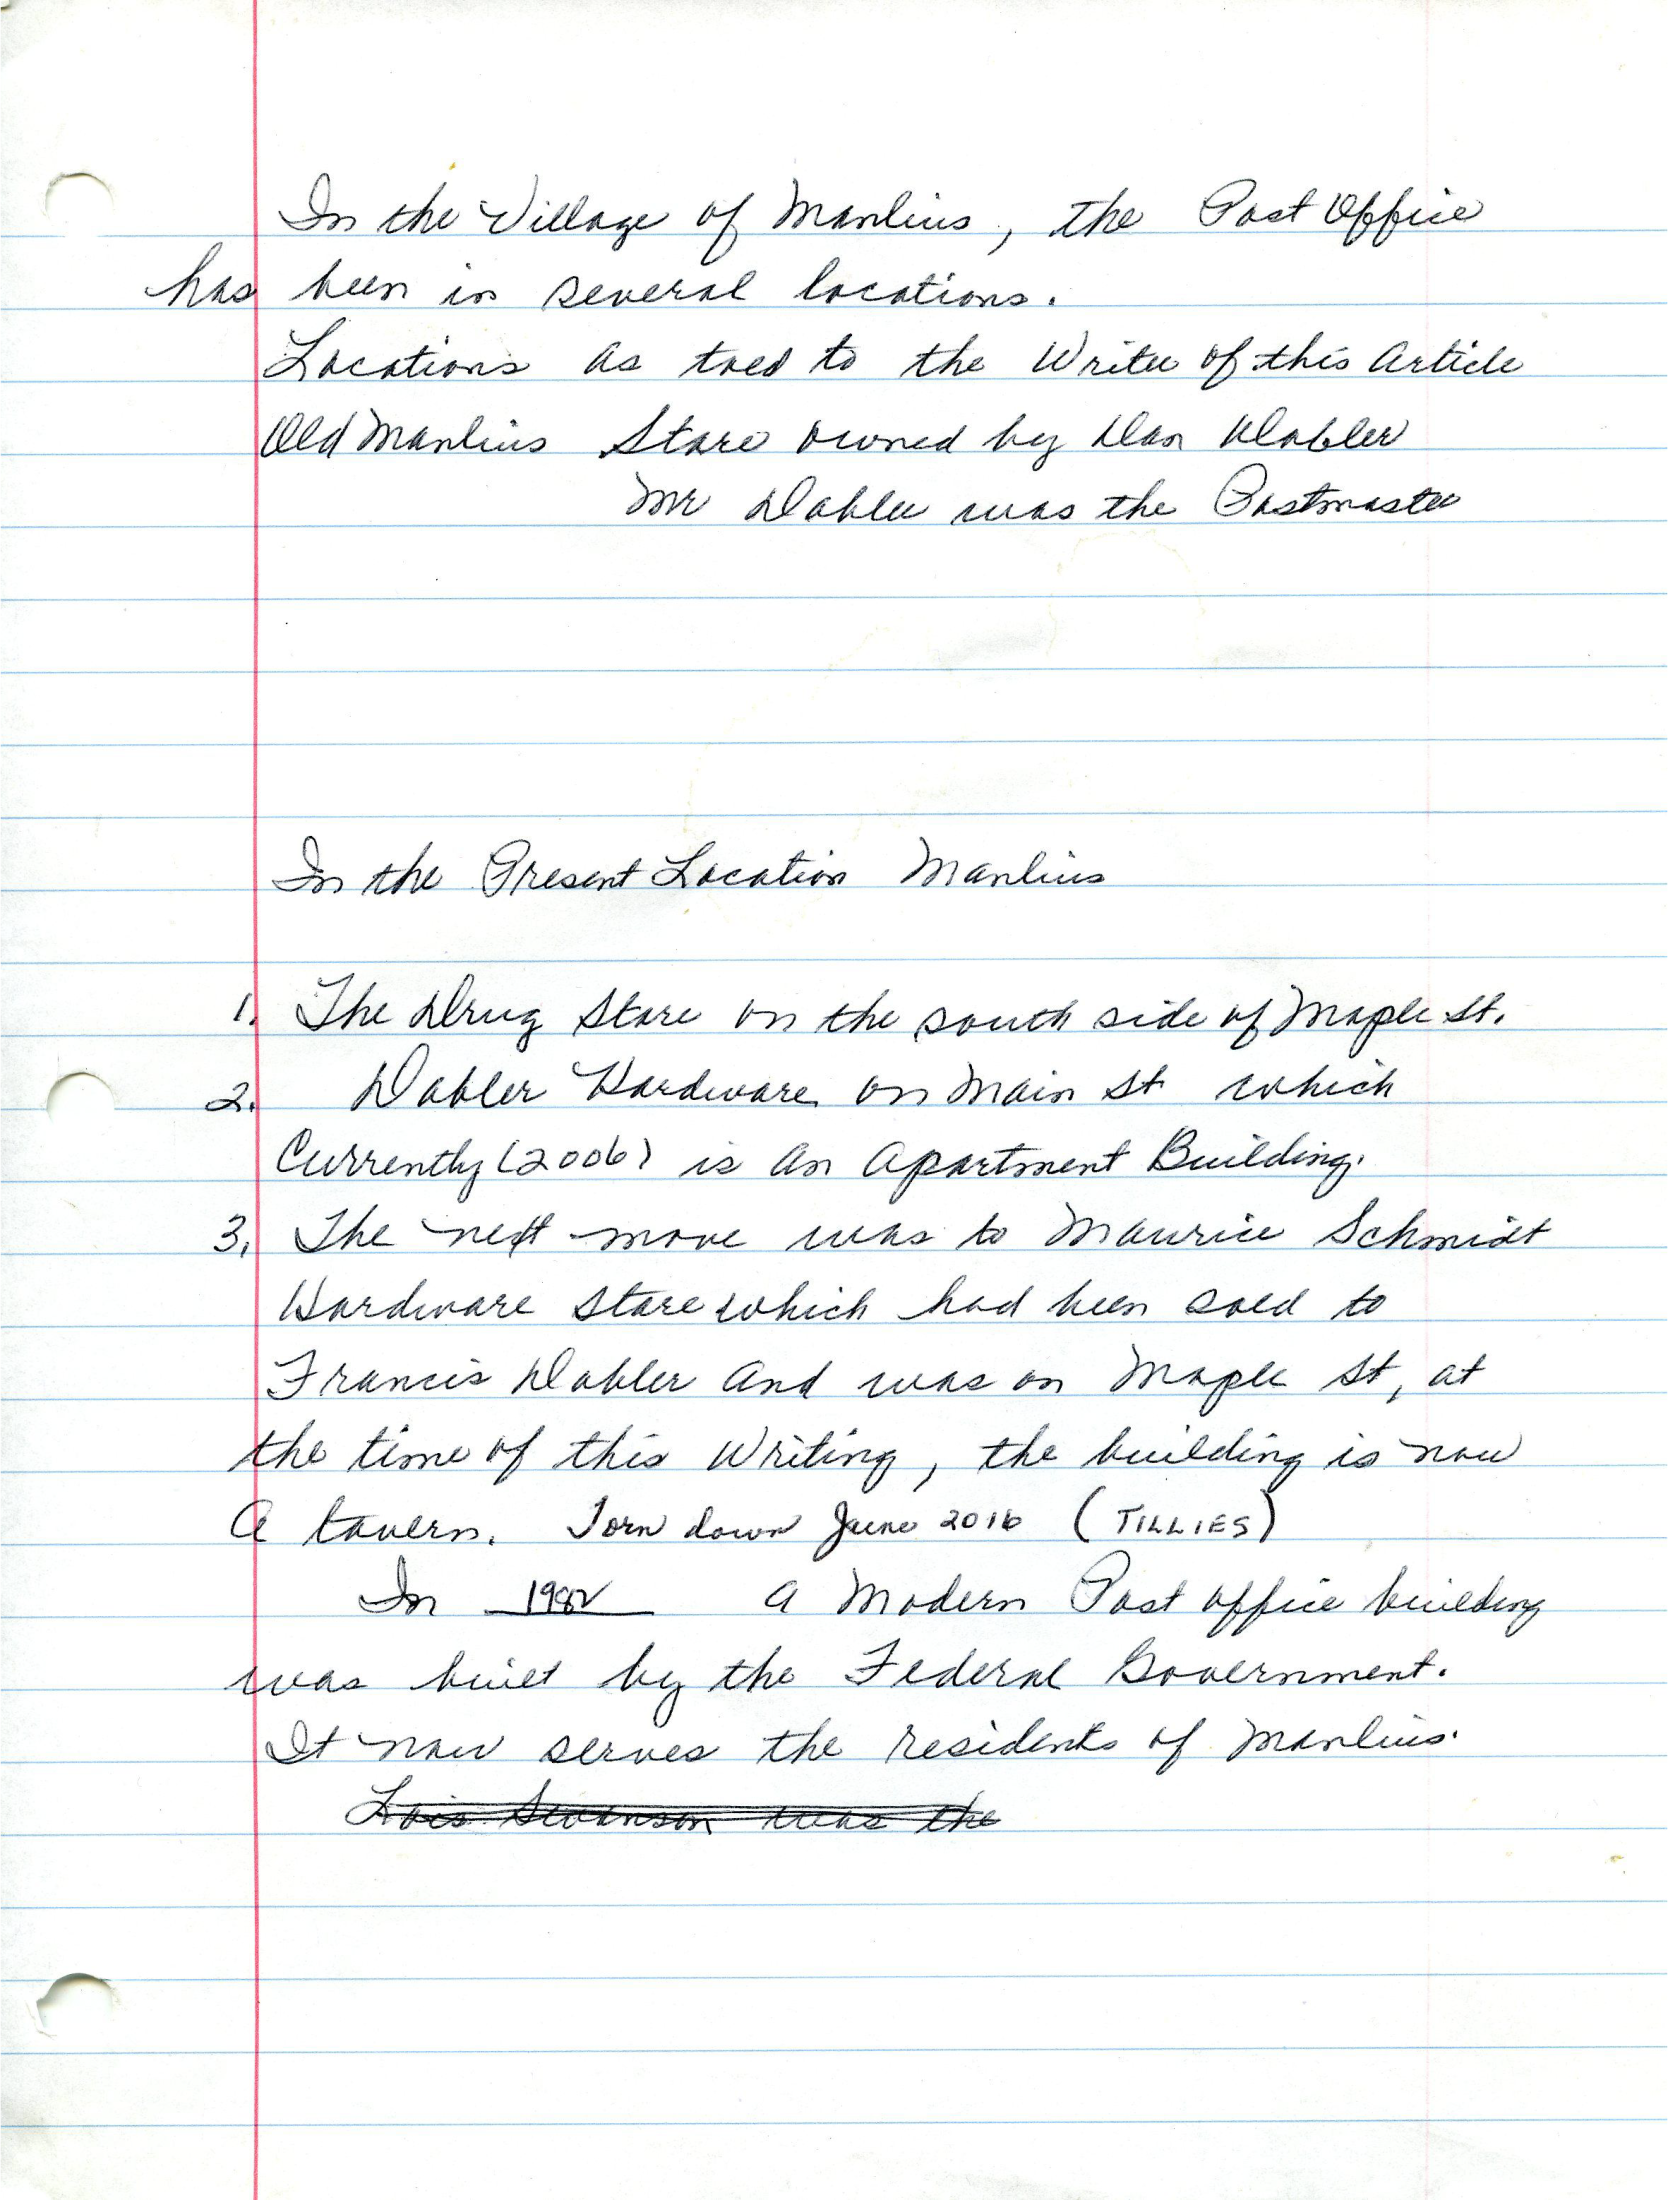 In the Village of Manlius, the Post Office
has been in several locations.
Locations as told to the Writer of this Article
Old Manlius Store owned by Dan Dabler
Mr Dabler was the Postmaster
In the Present Location Manlius
1. The Drug Store on the south side of Maple St.
2. Dabler Hardware on Main St which
Currently (2006) is an Apartment Building.
3. The next move was to Maurice Schmidt
Hardware Store which had been sold to
Francis Dabler and was on Maple St, at
the time of this Writing, the building is now
a tavern. Torn down June 2016 (TILLIES)
In 1982 a Modern Post office building
was built by the Federal Government.
It now serves the residents of Manlius.
Lois Swanson was the